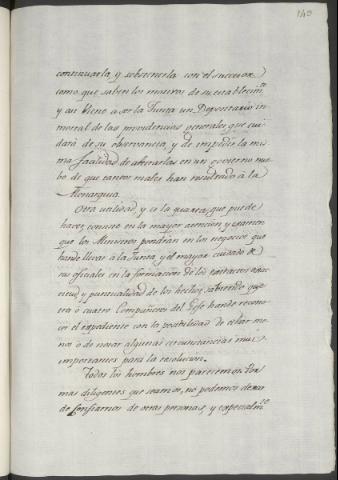 140
continuarla, y sobstenerla con el succesor
como que saben los motivos de su establecim.to
y asi viene a ser la Junta un Depositario in-
mortal de las providencias generales que cui-
dará de su observancia, y de impedir la mis-
ma facilidad de alterarlas en un govierno nue-
bo de que tantos males han resultado á la
Monarquia.
Otra utilidad, y es la quarta que puede
haver, consiste en la mayor atencion y examen
que los Ministros pondrán en los negocios que
han de llevar á la Junta, y el mayor cuidado de
sus oficiales en la formacion de los extractos exac-
titud y puntualidad de los hechos, sabiendo que
tres ó quatro Compañeros del Gefe han de recono-
cer el expediente con la posibilidad de echar me-
nos ó de notar algunas circunstancias mui
importantes para la resolucion.
Todos los hombres nos parecemos. Por
mas diligentes que seamos, no podemos dexar
de confiarnos de otras personas, y especialm.te